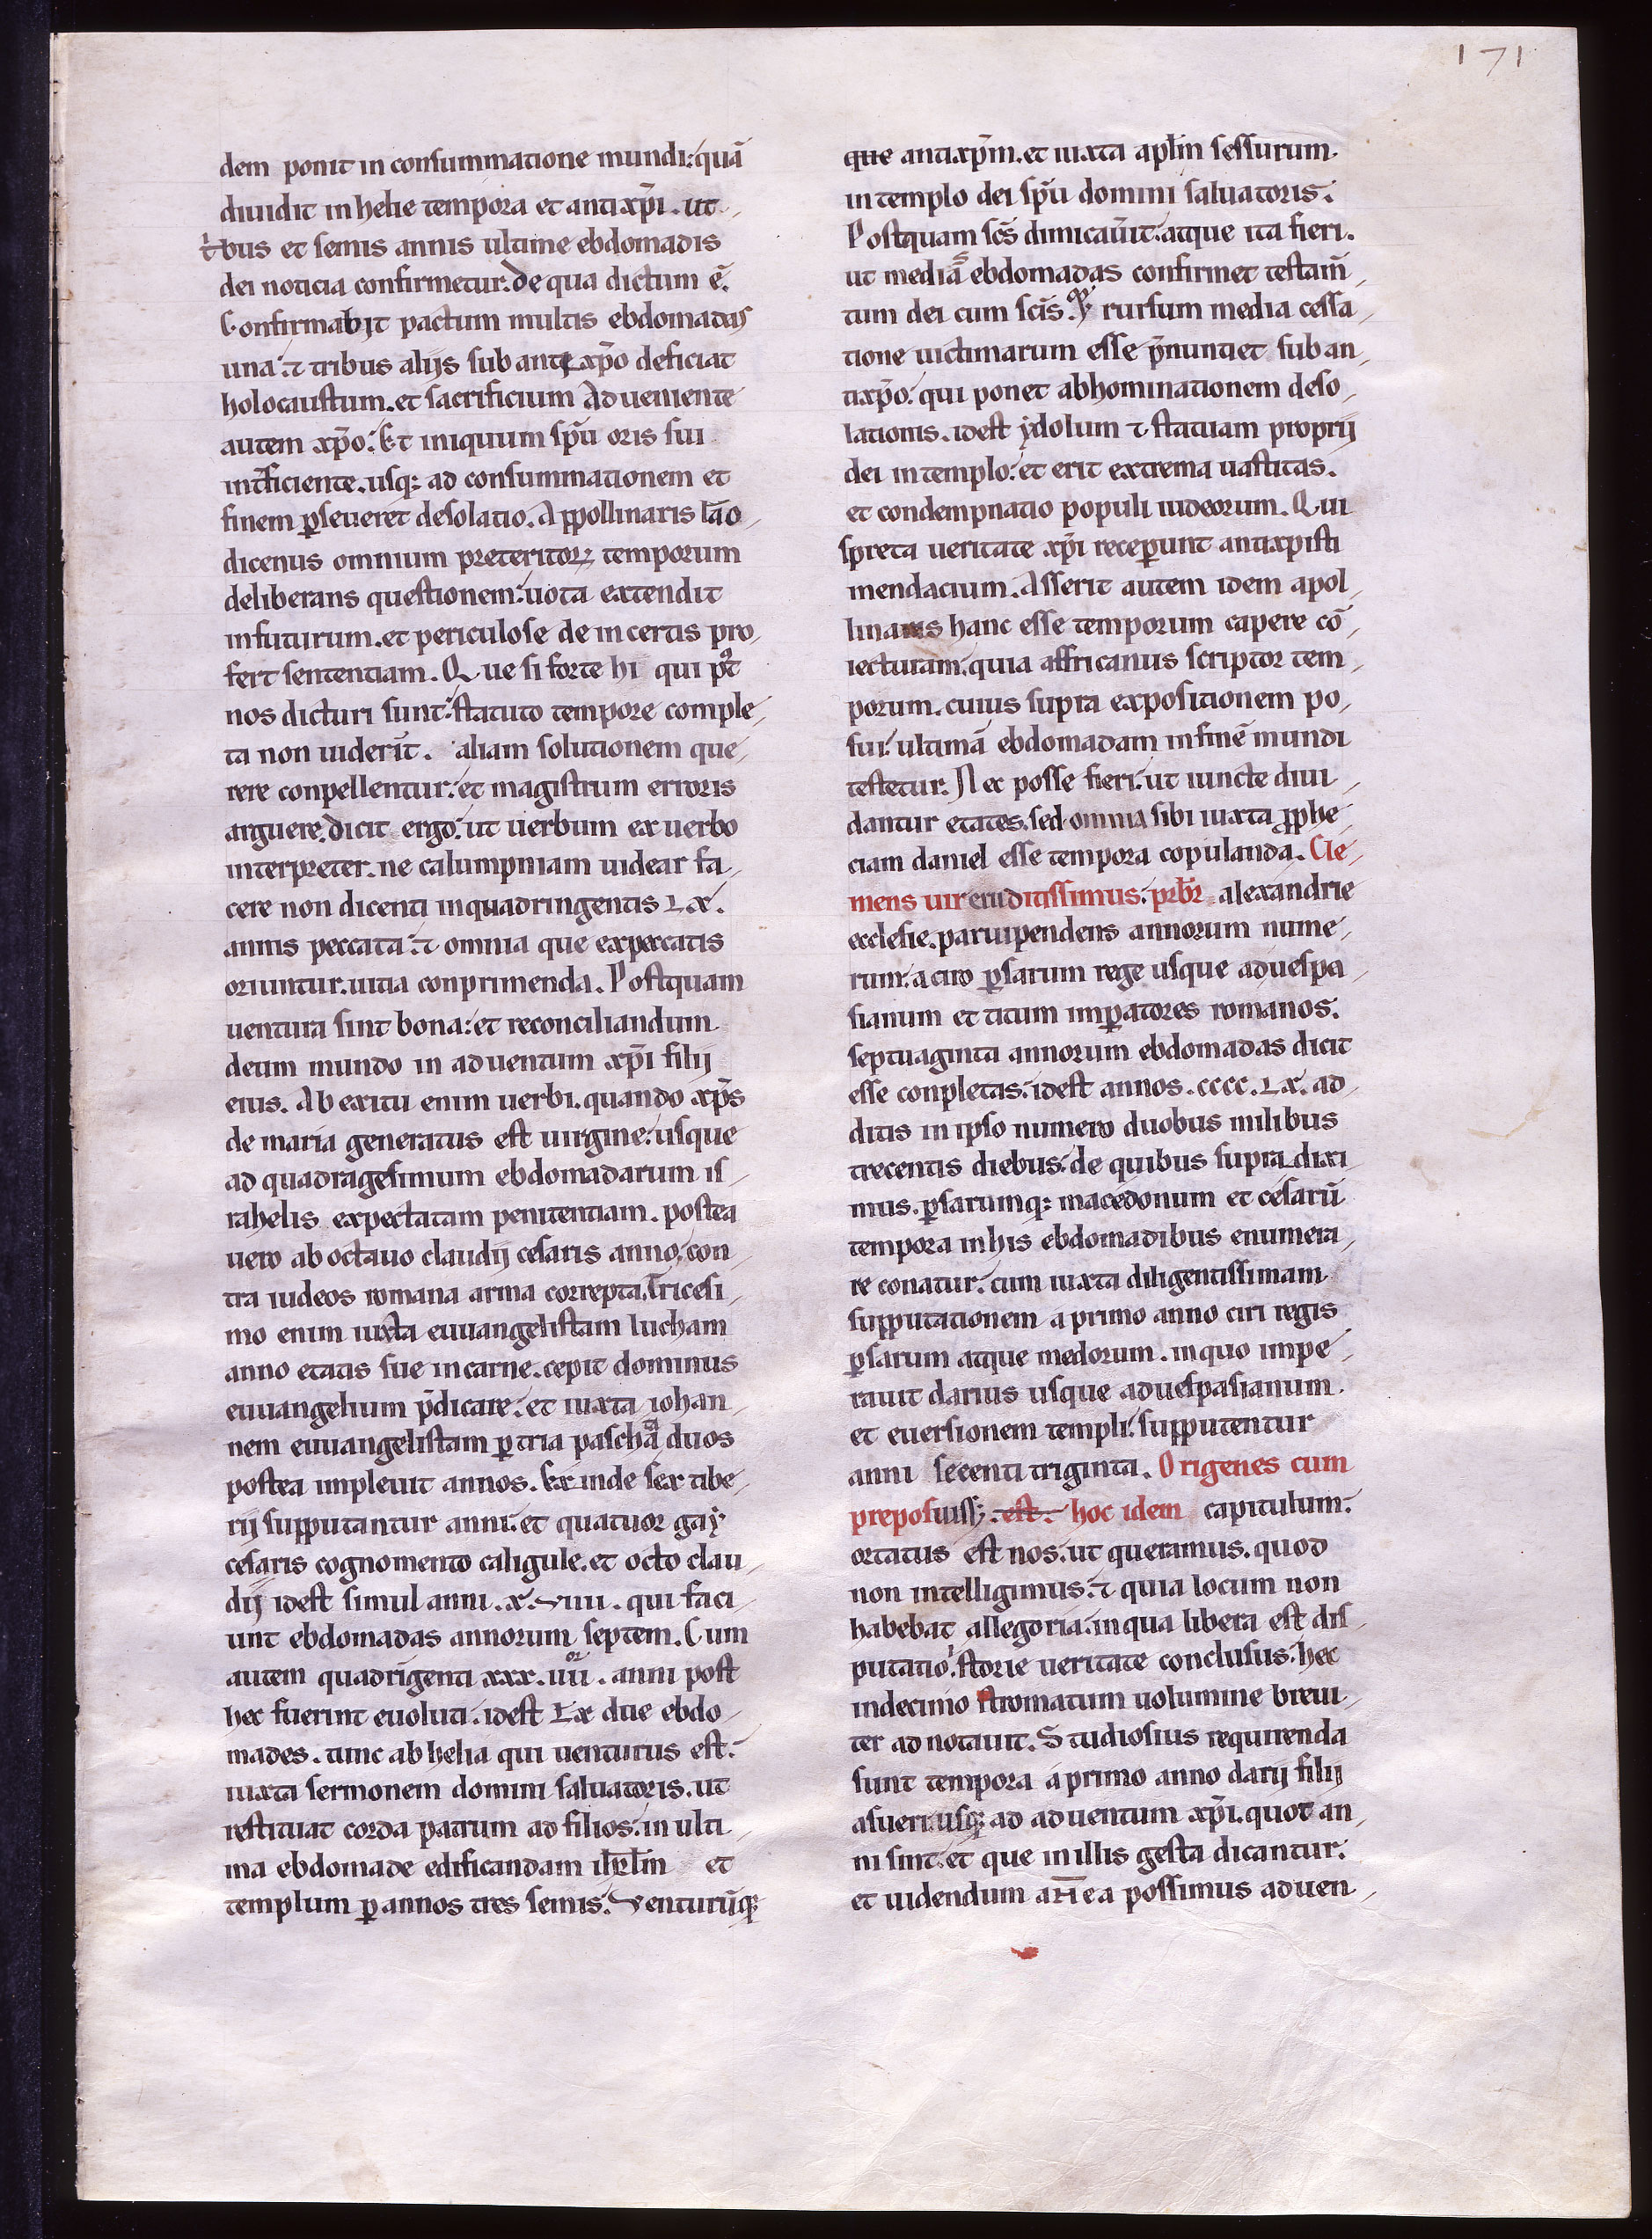 171
dem ponit in consummatione mundi: quā
diuidit in helie tempora et antixp̄i. ut
t͛bus et semis annis ultime ebdomadis
dei noticia confirmetur. de qua dictum ē.
Confirmabit pactum multis ebdomadas
una: ⁊ tribus alijs sub antexp̄o deficiat
holocaustum. et sacrificium Adueniente
autem xp̄o: Et iniquum sp̄u oris sui
int̄ficiente. usq; ad consummationem et
finem ꝑseueret desolatio. Appollinaris lāo
dicenus omnium preteritoꝝ temporum
deliberans questionem: uota extendit
in futurum. et periculose de incertis pro
fert sententiam. Que si forte hi qui p̊t
nos dicturi sunt: statuto tempore comple
ta non uiderīt. aliam solutionem que
rere conpellentur: et magistrum erroris
arguere. dicit ergo: ut uerbum ex uerbo
interpreter. ne calumpniam uidear fa
cere non dicenti in quadringentis Lx.
annis peccata: ⁊ omnia que ex peccatis
oriuntur. uitia conprimenda. Postquam
uentura sint bona: et reconciliandum
deum mundo in aduentum xp̄i filij
eius. Ab exitu enim uerbi. quando xp̄s
de maria generatus est uirgine: usque
ad quadragesimum ebdomadarum is
rahelis expectatam penitentiam. postea
uero ab octauo claudij cesaris anno, con
tra iudeos romana arma correpta. Tricesi
mo enim iuxta euuangelistam lucham
anno etatis sue in carne. cepit dominus
euuangelium p̄dicare: et iuxta iohan
nem euuangelistam ꝑ tria paschā duos
postea impleuit annos. Exinde sex tibe
rij supputantur anni: et quatuor gaẏ
cesaris cognomento caligule. et octo clau
dij idest simul anni. x. viiii. qui faci
unt ebdomadas annorum septem. Cum
autem quadrigenti xxx. iiii. anni post
hec fuerint euoluti. idest Lx due ebdo
mades. tunc ab helia qui uenturus est:
iuxta sermonem domini saluatoris. ut
restituat corda patrum ad filios: in ulti
ma ebdomade edificandam ihrlm̄ et
templum ꝑ annos tres semis: Venturūq;
que antixp̄m. et iuxta apl̄m sessurum
in templo dei sp̄u domini saluatoris:
Postquam sc̄s dimicau̅it: atque ita fieri.
ut mediā ebdomadas confirmet testam̄
tum dei cum sc̄is. rursum media cessa
tione uictimarum esse p̄nuntiet sub an
tixp̄o: qui ponet abhominationem deso
lationis. idest ẏdolum ⁊ statuam proprij
dei in templo: et erit extrema uastitas.
et condempnatio populi iudeorum. Qui
spreta ueritate xp̄i receꝑunt antixpisti
mendacium. Asserit autem idem apol
linares hanc esse temporum capere cō
iecturam: quia affricanus scriptor tem
porum. cuius supra expositionem po
sui: ultimā ebdomadam in finē mundi
testetur: Nec posse fieri: ut iuncte diui
dantur etates. sed omnia sibi iuxta ꝓphe
ciam daniel esse tempora copulanda. Cle
mens uir eruditissimus: prb̄r alexandrie
ecclesie. paruipendens annorum nume
rum: a ciro ꝑsarum rege usque ad uespa
sianum et titum imꝑatores romanos:
septuaginta annorum ebdomadas dicit
esse conpletas: idest annos. cccc. Lx. ad
ditis in ipso numero duobus milibus
trecentis diebus: de quibus supra dixi
mus. ꝑsarumq; macedonum et cesarū
tempora in his ebdomadibus enumera
re conatur: cum iuxta diligentissimam
supputationem a primo anno ciri regis
ꝑsarum atque medorum. in quo impe
rauit darius usque ad uespasianum
et euersionem templi: supputentur
anni secenti triginta. Origenes cum
preposuiss; est. hoc idem capitulum:
ortatus est nos. ut queramus. quod
non intelligimus: ⁊ quia locum non
habebat allegoria: in qua libera est dis
putatio: storie ueritate conclusus: hec
in decimo stromatum uolumine breui
ter adnotauit. Studiosius requirenda
sunt tempora a primo anno darij filij
asueri usq; ad aduentum xp̄i. quot an
ni sint. et que in illis gesta dicantur:
et uidendum an ea possimus aduen